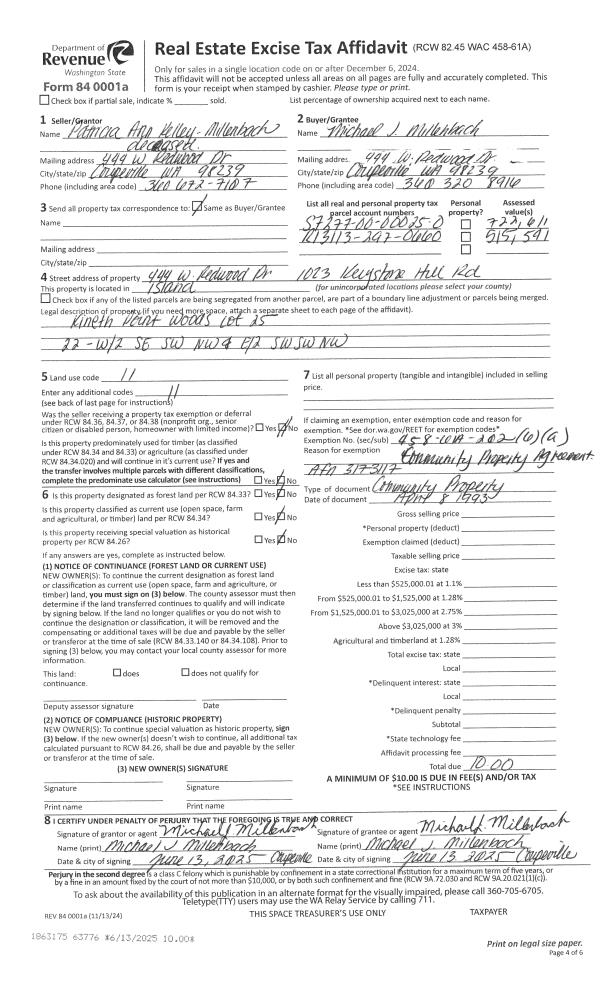 Department of
Revenue
Washington State
Form 84 0001a
Real Estate Excise Tax Affidavit (RCW 82.45 WAC 458-61A)
Only for sales in a single location code on or after December 6, 2024.
This affidavit will not be accepted unless all areas on all pages are fully and accurately completed. This
form is your receipt when stamped by cashier. Please type or print.
Check box if partial sale, indicate % ______ sold. List percentage of ownership acquired next to each name.
1 Seller/Grantor
Name Patricia Ann Kelley-Millenbach
deceased.
Mailing address 444 W Redwood Dr
City/state/zip Coupeville WA 98239
Phone (including area code) 360 672-7107
2 Buyer/Grantee
Name Michael J. Millenbach
Mailing addres. 444 W. Redwood Dr
City/state/zip Coupeville WA 98239
Phone (including area code) 360 320 8916
3 Send all property tax correspondence to: Same as Buyer/Grantee
Name
Mailing address
City/state/zip
List all real and personal property tax
parcel account numbers
Personal
property?
Assessed
value(s)
S7277-00-00025-0 722,611
R13113-297-0660 515,591
4 Street address of property 444 W. Redwood Dr 1023 Keystone Hill Rd
This property is located in Island (for unincorporated locations please select your county)
Check box if any of the listed parcels are being segregated from another parcel, are part of a boundary line adjustment or parcels being merged.
Legal description of property (if you need more space, attach a separate sheet to each page of the affidavit).
Kineth Point Woods Lot 25
22 - W/2 SE SW NW & E/2 SW SW NW
5 Land use code 11
Enter any additional codes 11
(see back of last page for instructions)
Was the seller receiving a property tax exemption or deferral
under RCW 84.36, 84.37, or 84.38 (nonprofit org., senior
citizen or disabled person, homeowner with limited income)? Yes No
Is this property predominately used for timber (as classified
under RCW 84.34 and 84.33) or agriculture (as classified under
RCW 84.34.020) and will continue in it's current use? If yes and
the transfer involves multiple parcels with different classifications,
complete the predominate use calculator (see instructions) Yes No
6 Is this property designated as forest land per RCW 84.33? Yes No
Is this property classified as current use (open space, farm
and agricultural, or timber) land per RCW 84.34? Yes No
Is this property receiving special valuation as historical
property per RCW 84.26? Yes No
If any answers are yes, complete as instructed below.
(1) NOTICE OF CONTINUANCE (FOREST LAND OR CURRENT USE)
NEW OWNER(S): To continue the current designation as forest land
or classification as current use (open space, farm and agriculture, or
timber) land, you must sign on (3) below. The county assessor must then
determine if the land transferred continues to qualify and will indicate
by signing below. If the land no longer qualifies or you do not wish to
continue the designation or classification, it will be removed and the
compensating or additional taxes will be due and payable by the seller
or transferor at the time of sale (RCW 84.33.140 or 84.34.108). Prior to
signing (3) below, you may contact your local county assessor for more
information.
This land: does does not qualify for
continuance.
Deputy assessor signature Date
(2) NOTICE OF COMPLIANCE (HISTORIC PROPERTY)
NEW OWNER(S): To continue special valuation as historic property, sign
(3) below. If the new owner(s) doesn't wish to continue, all additional tax
calculated pursuant to RCW 84.26, shall be due and payable by the seller
or transferor at the time of sale.
(3) NEW OWNER(S) SIGNATURE
Signature Signature
Print name Print name
7 List all personal property (tangible and intangible) included in selling
price.
If claiming an exemption, enter exemption code and reason for
exemption. *See dor.wa.gov/REET for exemption codes*
Exemption No. (sec/sub) 458-61A-202 (6)(a)
Reason for exemption Community Property Agreement.
AFN 3173117
Type of document Community Property
Date of document April 8 1993
Gross selling price
*Personal property (deduct)
Exemption claimed (deduct)
Taxable selling price
Excise tax: state
Less than $525,000.01 at 1.1%
From $525,000.01 to $1,525,000 at 1.28%
From $1,525,000.01 to $3,025,000 at 2.75%
Above $3,025,000 at 3%
Agricultural and timberland at 1.28%
Total excise tax: state
Local
*Delinquent interest: state
Local
*Delinquent penalty
Subtotal
*State technology fee
Affidavit processing fee
Total due 10.00
A MINIMUM OF $10.00 IS DUE IN FEE(S) AND/OR TAX
*SEE INSTRUCTIONS
8 I CERTIFY UNDER PENALTY OF PERJURY THAT THE FOREGOING IS TRUE AND CORRECT
Signature of grantor or agent Michael J Millenbach
Name (print) Michael J Millenbach
Date & city of signing June 13, 2025 Coupeville
Signature of grantee or agent Michael J. Millenbach
Name (print) Michael J. Millenbach
Date & city of signing June 13 2025 Coupeville
Perjury in the second degree is a class C felony which is punishable by confinement in a state correctional institution for a maximum term of five years, or
by a fine in an amount fixed by the court of not more than $10,000, or by both such confinement and fine (RCW 9A.72.030 and RCW 9A.20.021(1)(c)).
To ask about the availability of this publication in an alternate format for the visually impaired, please call 360-705-6705.
Teletype(TTY) users may use the WA Relay Service by calling 711.
REV 84 0001a (11/13/24) THIS SPACE TREASURER'S USE ONLY TAXPAYER
1863175 63776 *6/13/2025 10.00*
Print on legal size paper.
Page 4 of 6